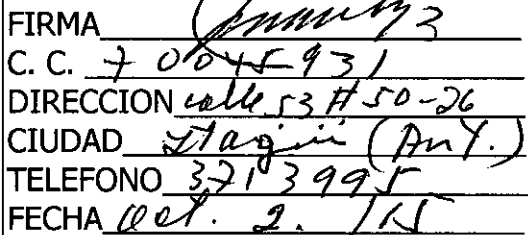 FIRMA
C. C. 70045931
DIRECCION calle 53 # 50-26
CIUDAD Itagüi (Ant.)
TELEFONO 3713995
FECHA Oct. 2. /15